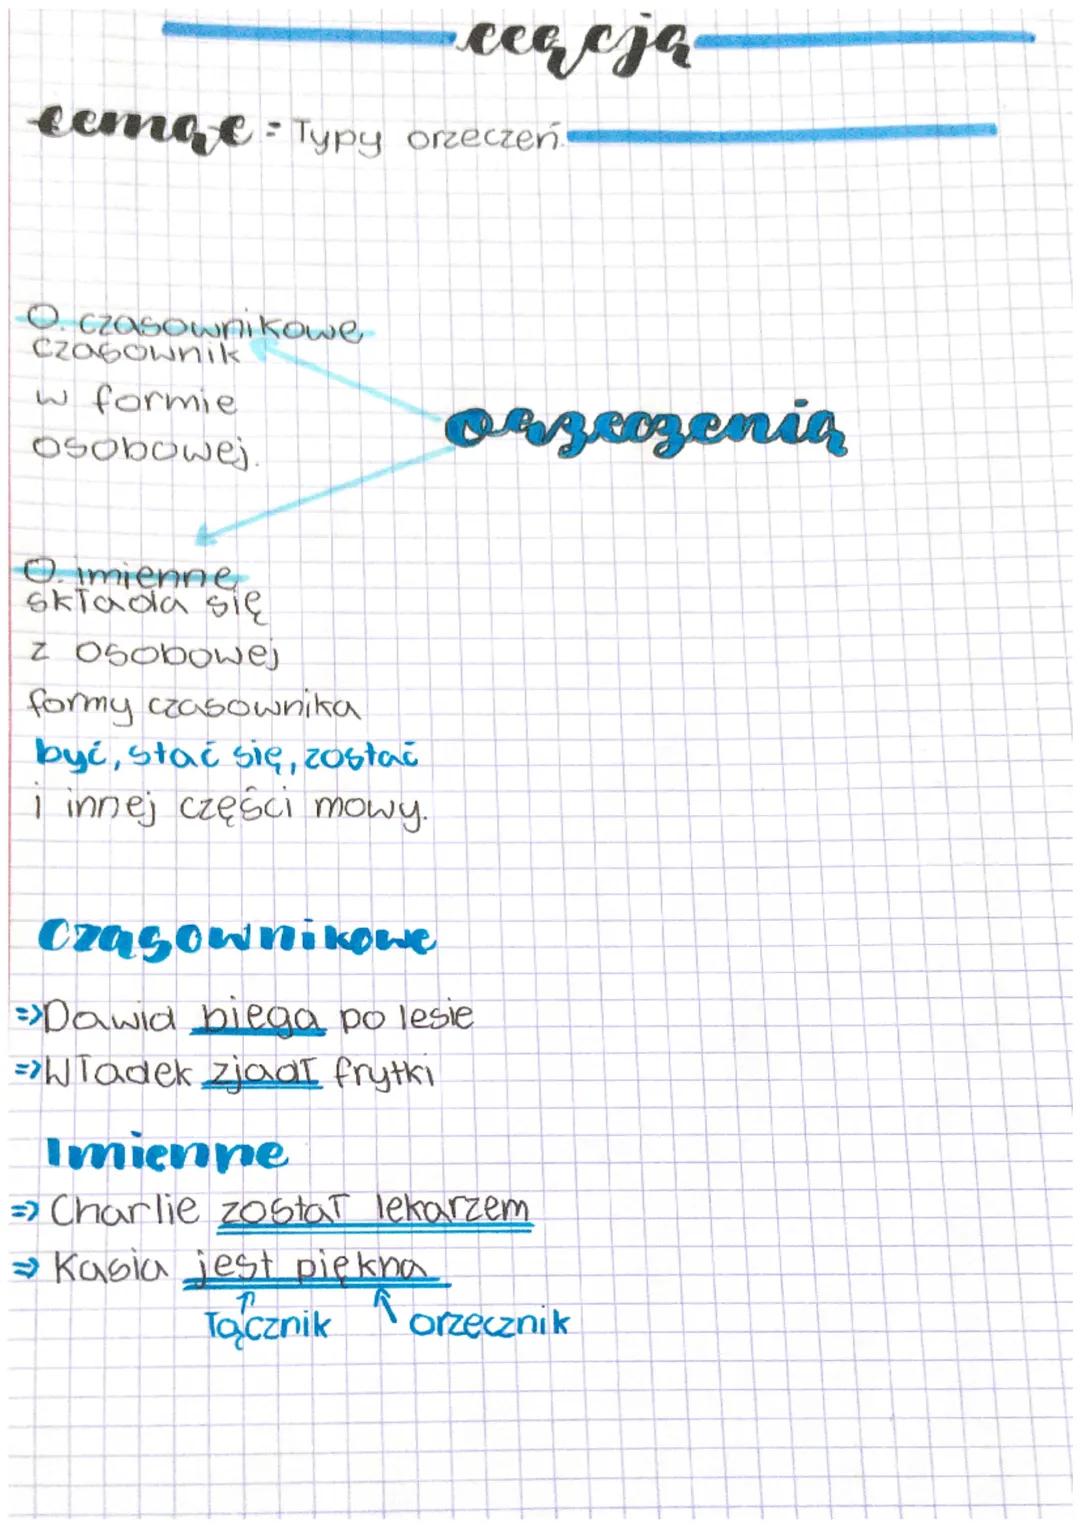 Typy orzeczeń
O. czasownikowe
czasownik
w formie
osobowej.
orzeczenia
O. imienne
składa się
z osobowej
formy czasownika
być, stać się, zostać
i innej części mowy.
Czasownikowe
=>Dawid biega po lesie
=>Władek zjadł frytki
Imienne
=> Charlie został lekarzem
=> Kasia jest piękna
łącznik orzecznik